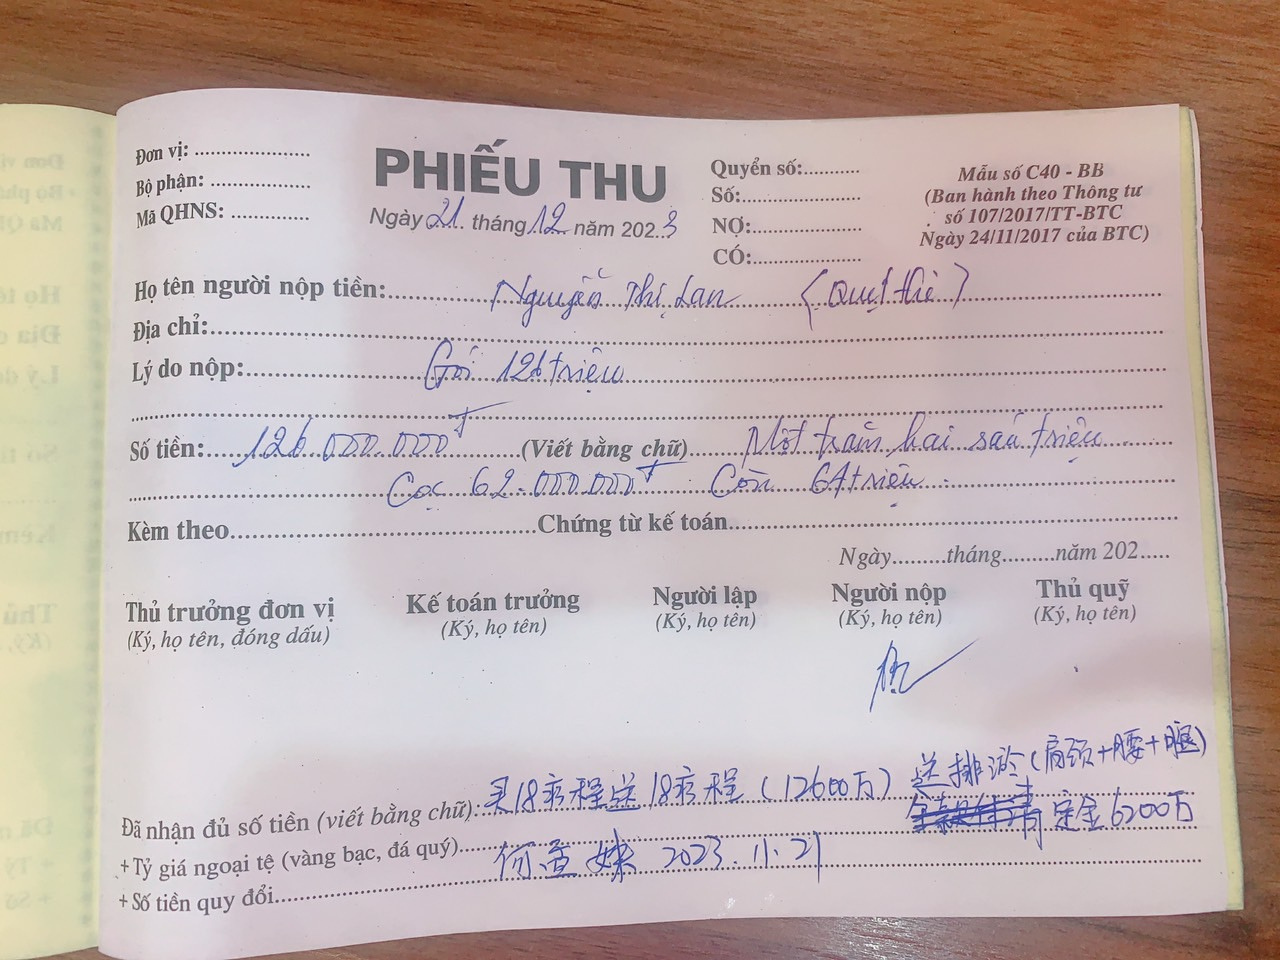 Đơn vị: ....................
Bộ phận: ....................
Mã QHNS: ....................
PHIẾU THU
Ngày 21 tháng 12 năm 2023
Quyển số:............
Số:............
NỢ:............
CÓ:............
Mẫu số C40 - BB
(Ban hành theo Thông tư
số 107/2017/TT-BTC
Ngày 24/11/2017 của BTC)
Họ tên người nộp tiền: Nguyễn Thị Lan (Quỵt thì)
Địa chỉ:
Lý do nộp: Gói 126 triệu
Số tiền: 126.000.000đ (Viết bằng chữ) Một trăm hai sáu triệu
Cọc 62.000.000đ Còn 64 triệu.
Kèm theo............Chứng từ kế toán............
Ngày.........tháng.........năm 202.....
Thủ trưởng đơn vị
(Ký, họ tên, đóng dấu)
Kế toán trưởng
(Ký, họ tên)
Người lập
(Ký, họ tên)
Người nộp
(Ký, họ tên)
Thủ quỹ
(Ký, họ tên)
送排淤(肩颈+腰+腿)
Đã nhận đủ số tiền (viết bằng chữ): 买18疗程送18疗程(12600万)
定金6200万
+ Tỷ giá ngoại tệ (vàng bạc, đá quý) 妹 2023.11.21
+ Số tiền quy đổi